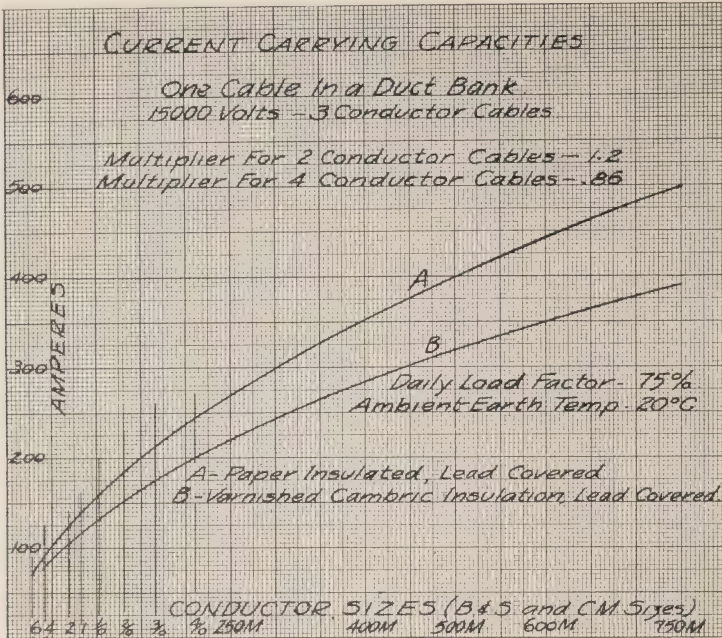 CURRENT CARRYING CAPACITIES
One Cable In a Duct Bank
15000 Volts - 3 Conductor Cables
Multiplier For 2 Conductor Cables - 1.2
Multiplier For 4 Conductor Cables - .86
600
500
400
300
200
100
AMPERES
A
B
Daily Load Factor - 75%
Ambient Earth Temp. 20°C
A - Paper Insulated, Lead Covered
B - Varnished Cambric Insulation, Lead Covered.
CONDUCTOR SIZES (B & S. and CM. Sizes)
6 4 2 1 1/0 2/0 3/0 4/0 250M 400M 500M 600M 750M